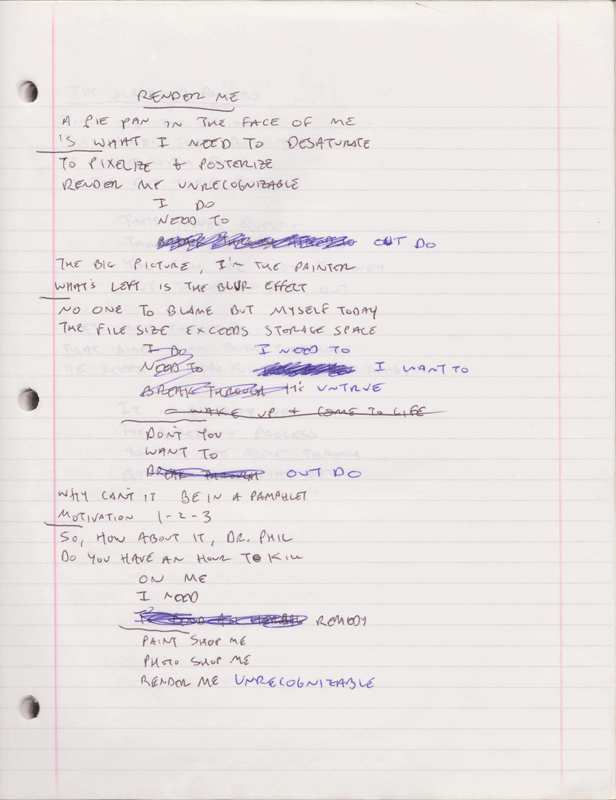 RENDER ME
A PIE PAN IN THE FACE OF ME
'S WHAT I NEED TO DESATURATE
TO PIXELIZE & POSTERIZE
RENDER ME UNRECOGNIZABLE
I DO
NEED TO
OUT DO
THE BIG PICTURE, I'M THE PAINTER
WHAT'S LEFT IS THE BLUR EFFECT
NO ONE TO BLAME BUT MYSELF TODAY
THE FILE SIZE EXCEEDS STORAGE SPACE
I DO I NEED TO
NEED TO I WANT TO
BREAK THROUGH IT'S UNTRUE
WAKE UP & COME TO LIFE
DON'T YOU
WANT TO
BREAK THROUGH OUT DO
WHY CANT IT BE IN A PAMPHLET
MOTIVATION 1-2-3
SO, HOW ABOUT IT, DR. PHIL
DO YOU HAVE AN HOUR TO KILL
ON ME
I NEED
REMEDY
PAINT SHOP ME
PHOTO SHOP ME
RENDER ME UNRECOGNIZABLE